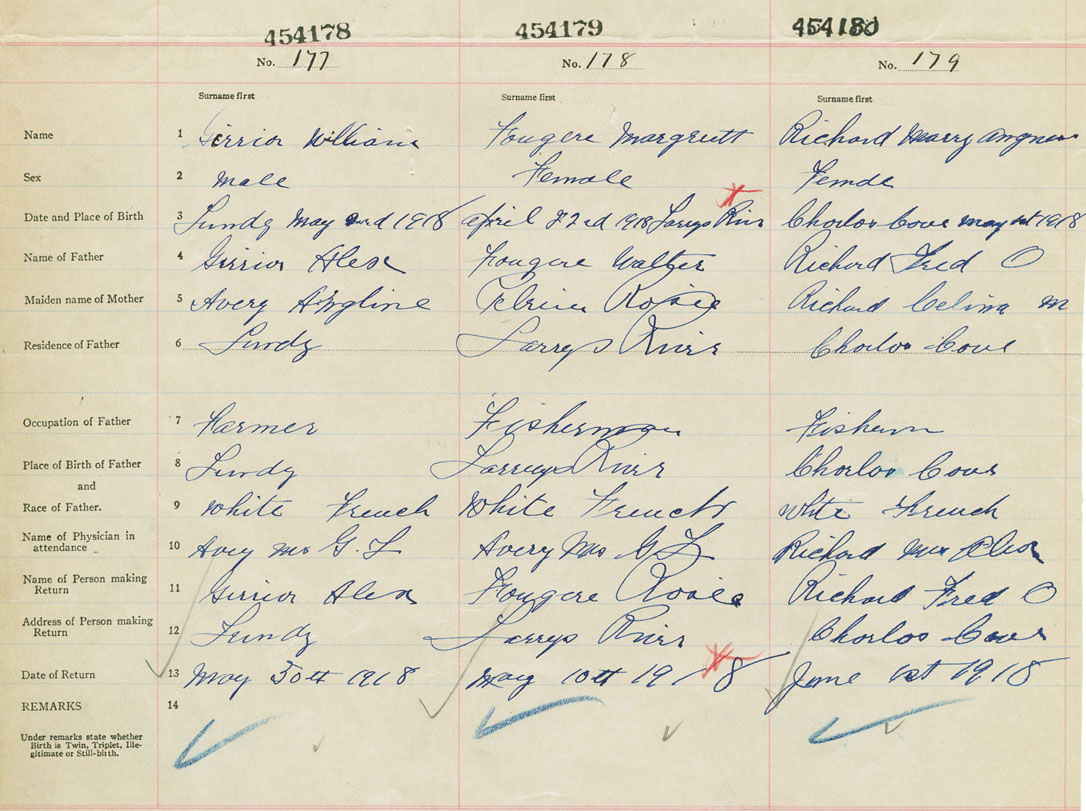 454178 454179 454180
No. 177 No. 178 No. 179
Surname first Surname first Surname first
Name 1 Girrior William Fougere Margrett Richard Harry
Sex 2 Male Female Femde
Date and Place of Birth 3 Lundy May 2nd 1918 April 22nd 1918 Larrys River Charlos Cove May 1st 1918
Name of Father 4 Girrior Alex Fougere Walter Richard Fred O
Maiden name of Mother 5 Avery Angline Rosie Richard Celina M
Residence of Father 6 Lundy Larrys River Charlos Cove
Occupation of Father 7 Farmer Fisherman Fisherm
Place of Birth of Father 8 Lundy Larrys River Charlos Cove
and
Race of Father. 9 White French White French White French
Name of Physician in
attendance 10 Avery Mrs G. L Avery Mrs G L Richard Mrs
Name of Person making
Return 11 Girrior Alex Fougere Rosie Richard Fred O
Address of Person making
Return 12 Lundy Larrys River Charlos Cove
Date of Return 13 May 30th 1918 May 10th 1918 June 1st 1918
REMARKS 14
Under remarks state whether
Birth is Twin, Triplet, Ille-
gitimate or Still-birth.